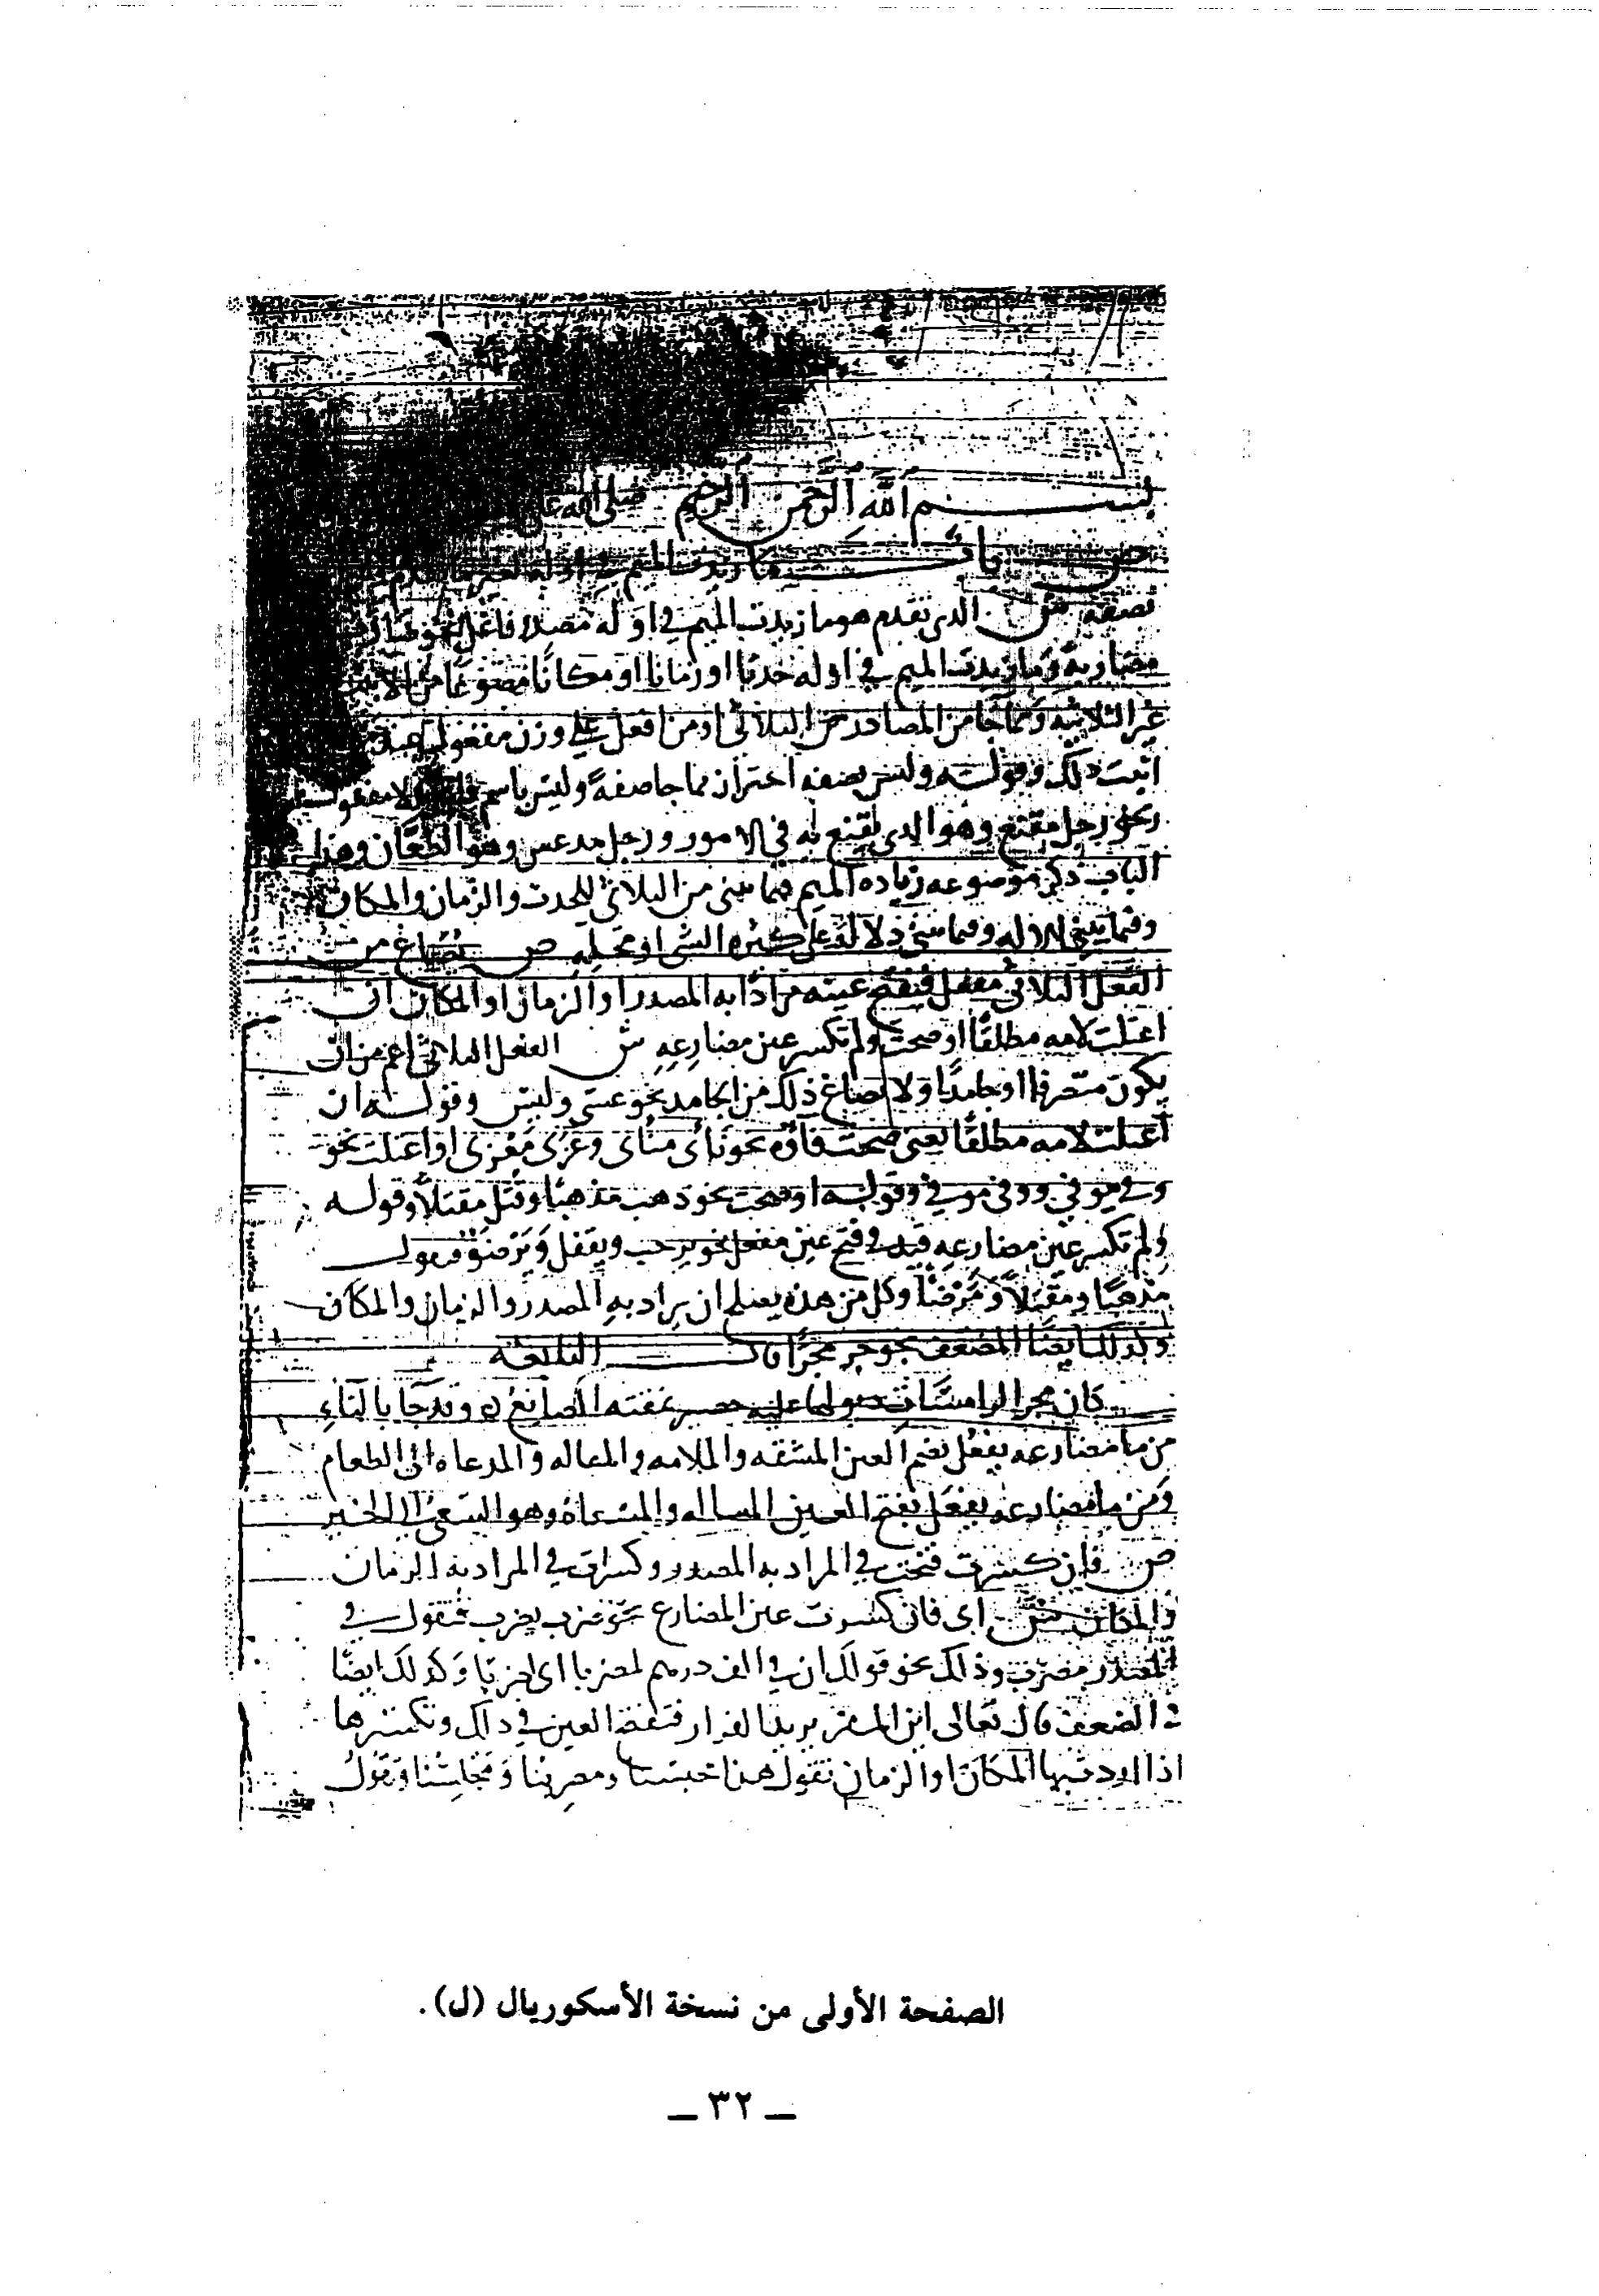 بسم الله الرحمن الرحيم صلى الله
ص باب ما زيدت الميم في اوله لغير
بصفة ش الذي تقدم هو ما زيدت الميم في اوله مصدر فاعل نحو ضارب
مضاربة وما زيدت الميم في اوله حدثا او زمانا او مكانا مصوغا من
غير الثلاثية وما جا من المصادر من الثلاثي او من افعل على وزن مفعول
اثبت ذلك وقوله وليس بصفه احتراز مما جا صفة وليس باسم
نحو رجل مقنع وهو الذي يقنع به في الامور ورجل مدعس وهو الطعان وهذا
الباب ذكر موضوعه زياده الميم فيما بني من الثلاثي للحدث والزمان والمكان
وفيما بني لاله وفيما بني دلالة على كثره الشي او محله ص يصاغ من
الفعل الثلاثي مفعل فيفتح عينه مرادا به المصدر او الزمان او المكان ان
اعتلت لامه مطلقا او صحت ولم تكسر عين مضارعه ش الفعل الثلاثي اعم من ان
يكون متصرفا او جامدا ولا يصاغ ذلك من الجامد نحو عسى وليس وقوله ان
اعتلت لامه مطلقا يعني صحت فاؤه نحو نأى منأى وغزى مغزى او اعتلت نحو
وفى موفى وقوله او صحت نحو ذهب مذهبا وقتل مقتلا وقوله
ولم تكسر عين مضارعه قيد في فتح عين مفعل نحو يرحب ويقفل فيقول
مذهبا ومقتلا وكل من هذه يصلح ان يراد به المصدر والزمان والمكان
وكذلك ايضا المضعف نحو جر مجرا قال النابغه
كان مجر الرامسات ذيولها عليه حصير نمقته الصانع وقد جا بالتاء
من ما مضارعه يفعل بضم العين المشقه والملامه والمقاله والمدعاه الى الطعام
ومن ما مضارعه يفعل بفتح العين المساله والمسعاة وهو السعي الى الخير
ص فان كسرت فتحت في المراد به المصدر وكسرت في المراد به الزمان
والمكان ش اي فان كسرت عين المضارع نحو ضرب يضرب فتقول في
المصدر مضرب وذلك نحو قولك ان في الف درهم لمضربا اي لضربا وكذلك ايضا
في المضعف قال تعالى اين المفر يريد الفرار فتفتح العين في ذلك وتكسرها
اذا اردت بها المكان او الزمان تقول هذا محبسنا ومضربنا ومجلسنا وتقول
الصفحة الأولى من نسخة الأسكوريال (ل).
ـ ٣٢ ـ